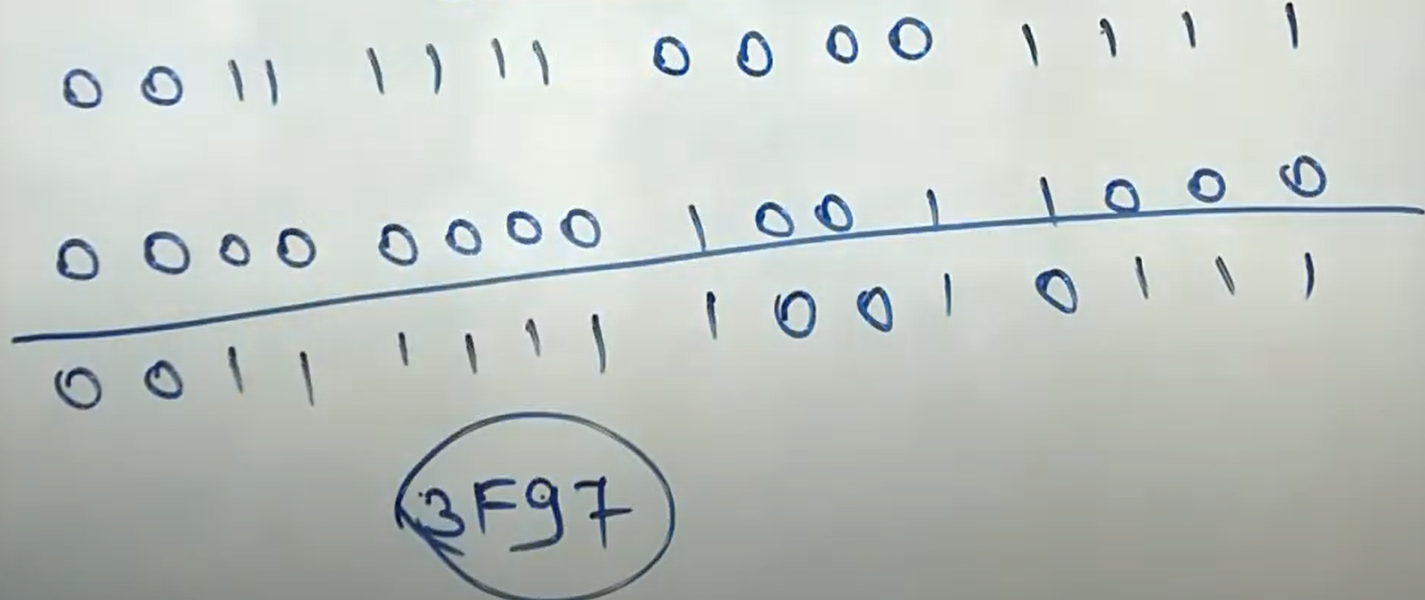 0 0 1 1 1 1 1 1 0 0 0 0 1 1 1 1
0 0 0 0 0 0 0 0 1 0 0 1 1 0 0 0
0 0 1 1 1 1 1 1 1 0 0 1 0 1 1 1
3F97